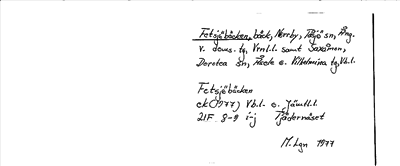 Fetsjöbäcken, bäck, Norrby, Tåsjö sn, Ång.
v. doms.tg, Vrnl.l. samt Saxåmon,
Dorotea sn, Åsele o. Vilhelmina tg, Vb.l.
Fetsjöbäcken
ek (1977) Vb.l. o. Jämtl.l
21F 8-9 i-j Tjädernäset
M. Lgn 1977